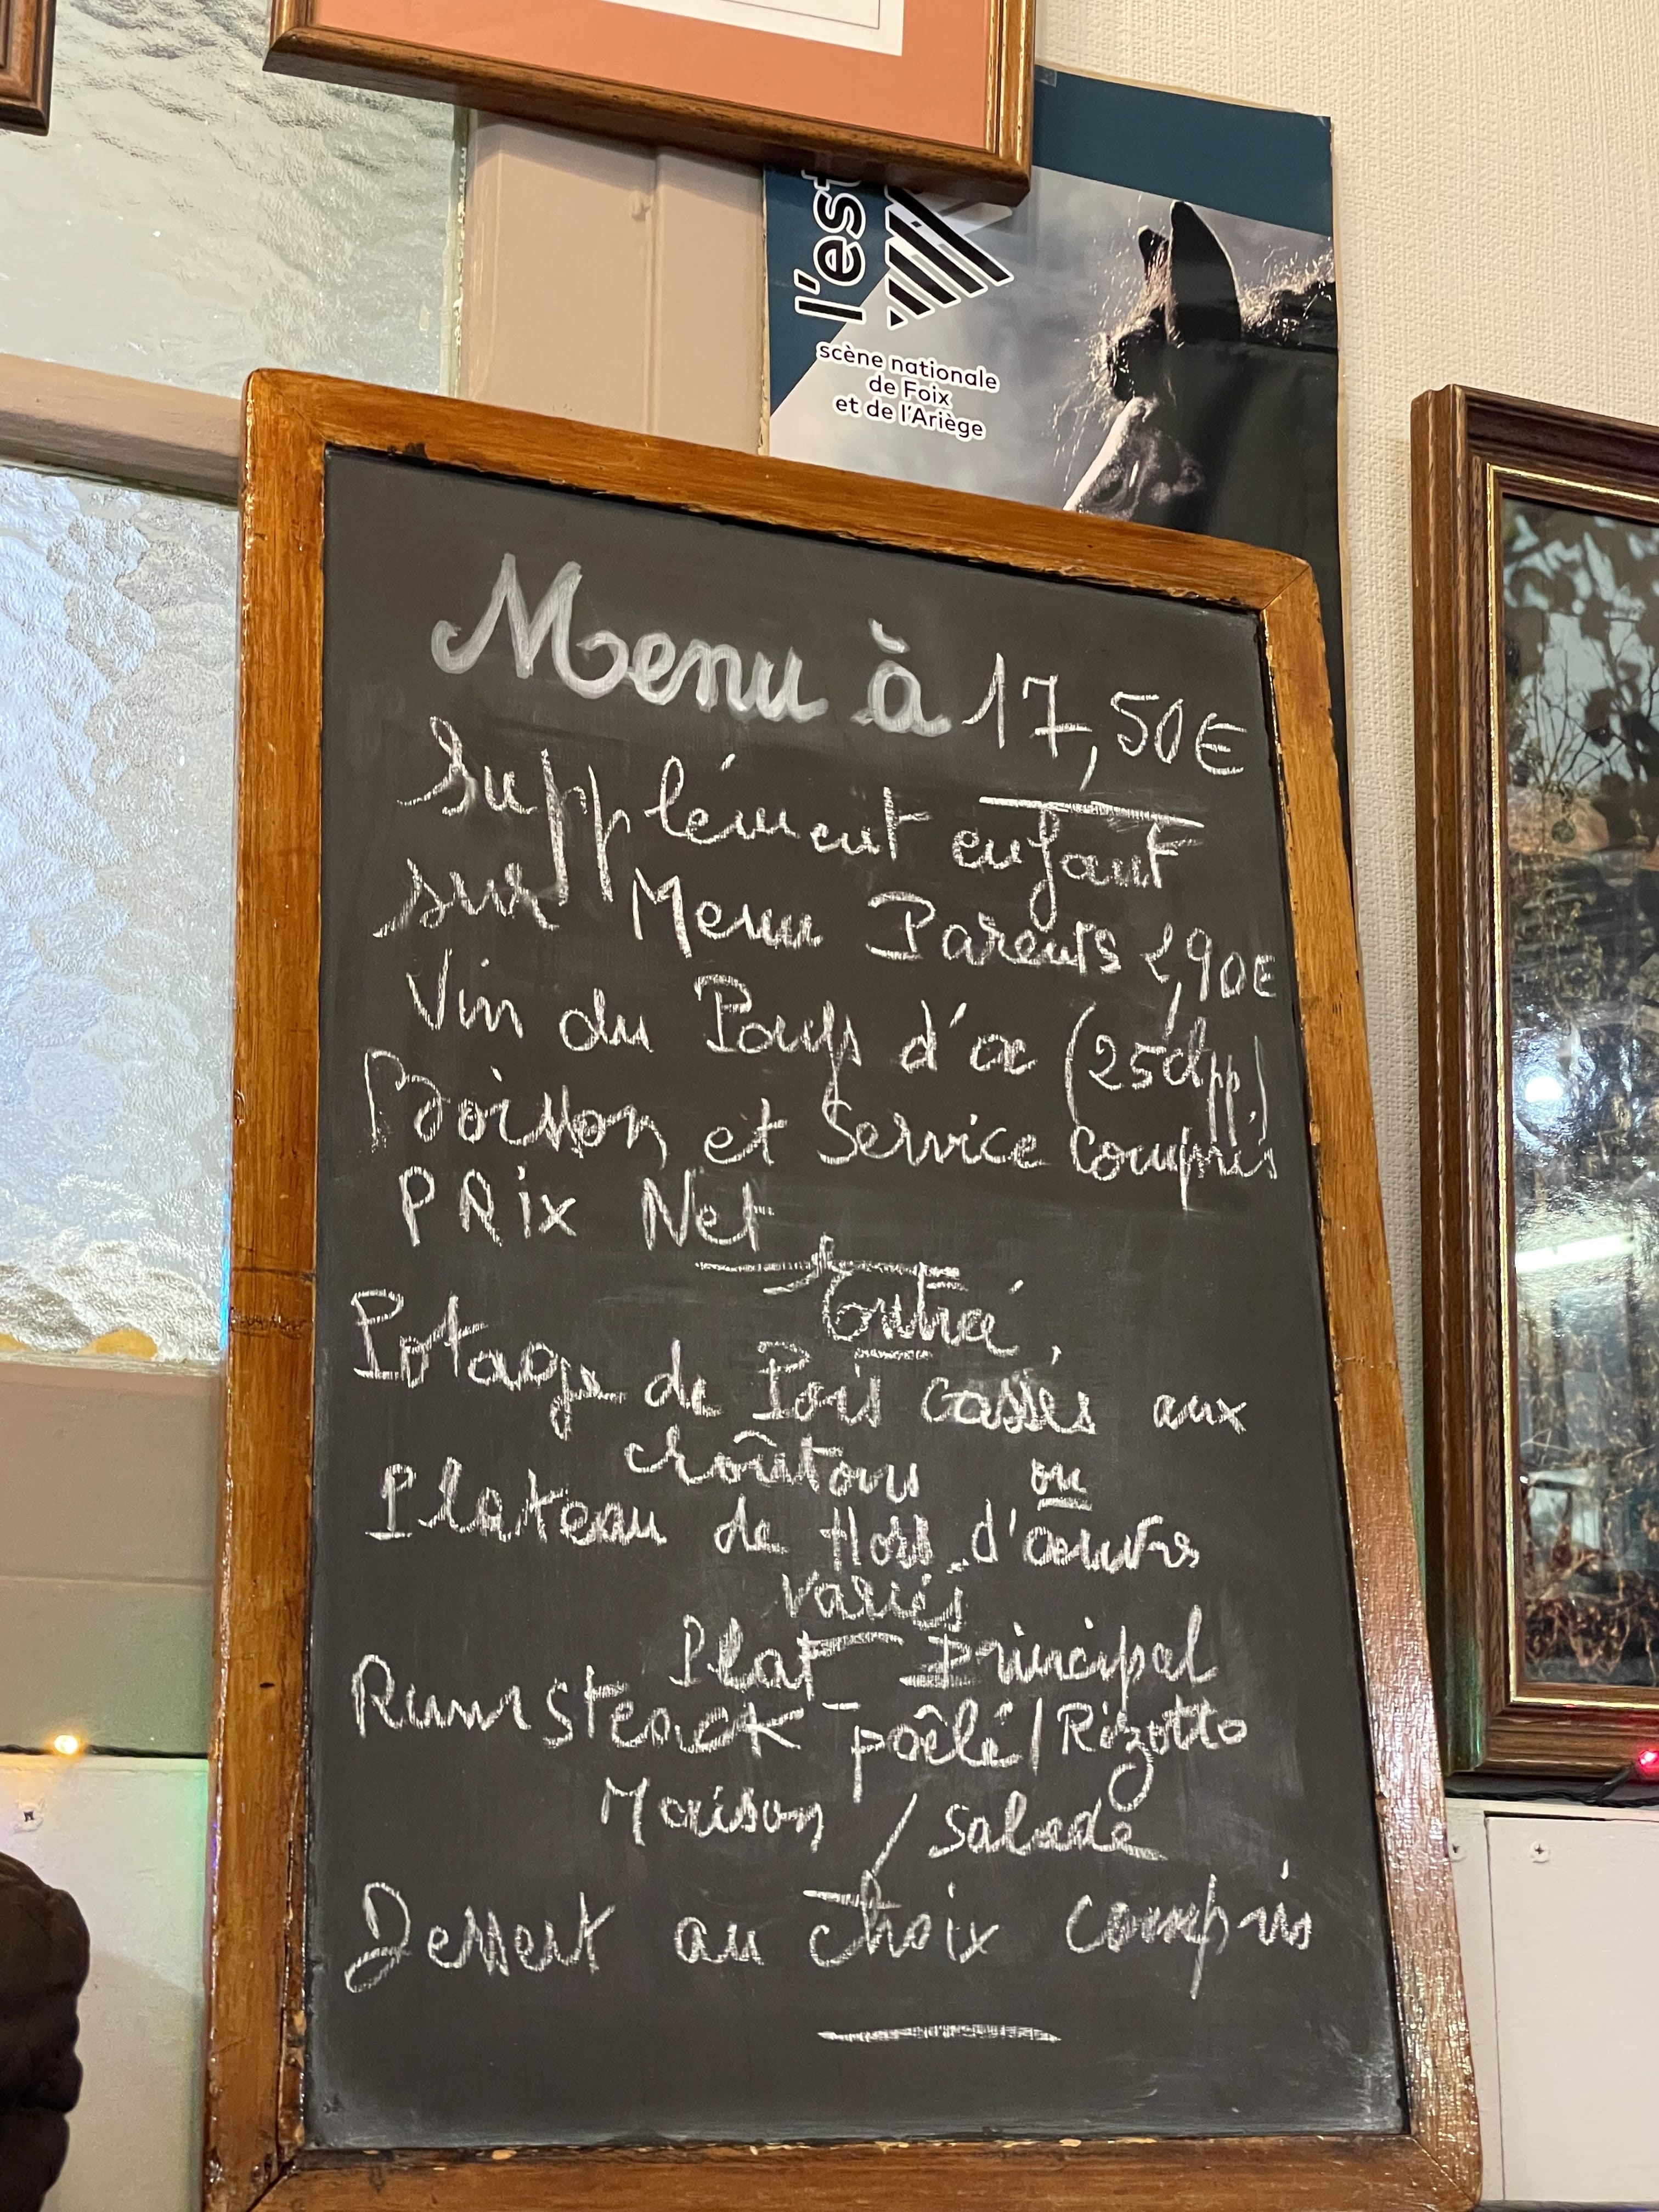 l'est
scène nationale
de Foix
et de l'Ariège
Menu à 17,50€
Supplément enfant
sur Menu Parents 2,90€
Vin du Pays d'oc (25cl pp)
Boisson et Service Compris
PRix Net
Entrée
Potage de Pois Cassés aux
croûtons ou
Plateau de Hors d'œuvres
variés
Plat Principal
Rumsteack poêlé/Rizotto
Maison / Salade
Dessert au choix Compris